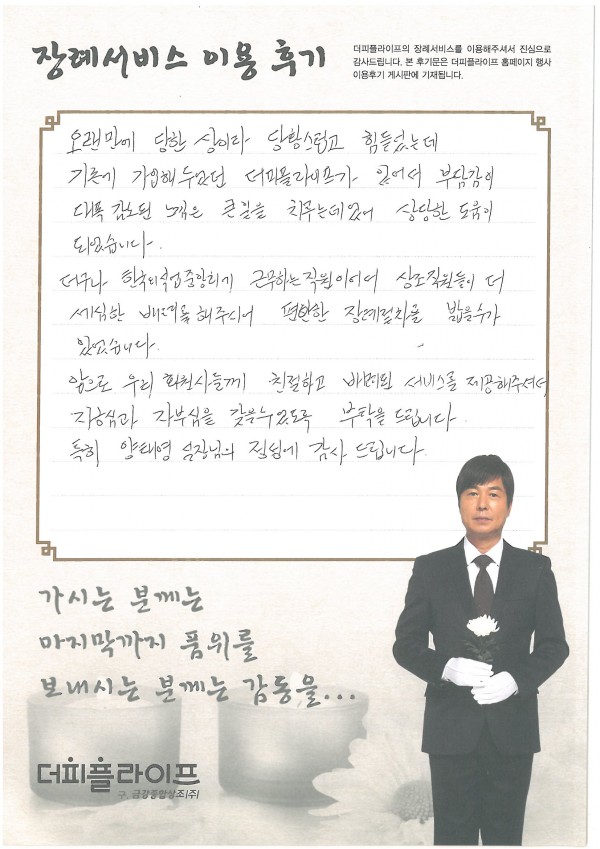 장례서비스 이용 후기
더피플라이프의 장례서비스를 이용해주셔서 진심으로
감사드립니다. 본 후기문은 더피플라이프 홈페이지 행사
이용후기 게시판에 기재됩니다.
오랜만에 당한 상이라 당황스럽고 힘들었는데
기존에 가입해두었던 더피플라이프가 있어서 부담감이
대폭 감소된 느낌은 큰일을 치루는데 있어 상당한 도움이
되었습니다.
더구나 근무하는 직원이어서 상조직원들이 더
세심한 배려를 해주시어 편안한 장례절차를 밟을수가
있었습니다.
앞으로 우리 회원사들께 친절하고 서비스를 제공해주셔서
자긍심과 자부심을 갖을수 있도록 부탁을 드립니다.
특히 양태영 실장님의 정성에 감사 드립니다.
가시는 분께는
마지막까지 품위를
보내시는 분께는 감동을...
더피플라이프
구. 금강종합상조(주)